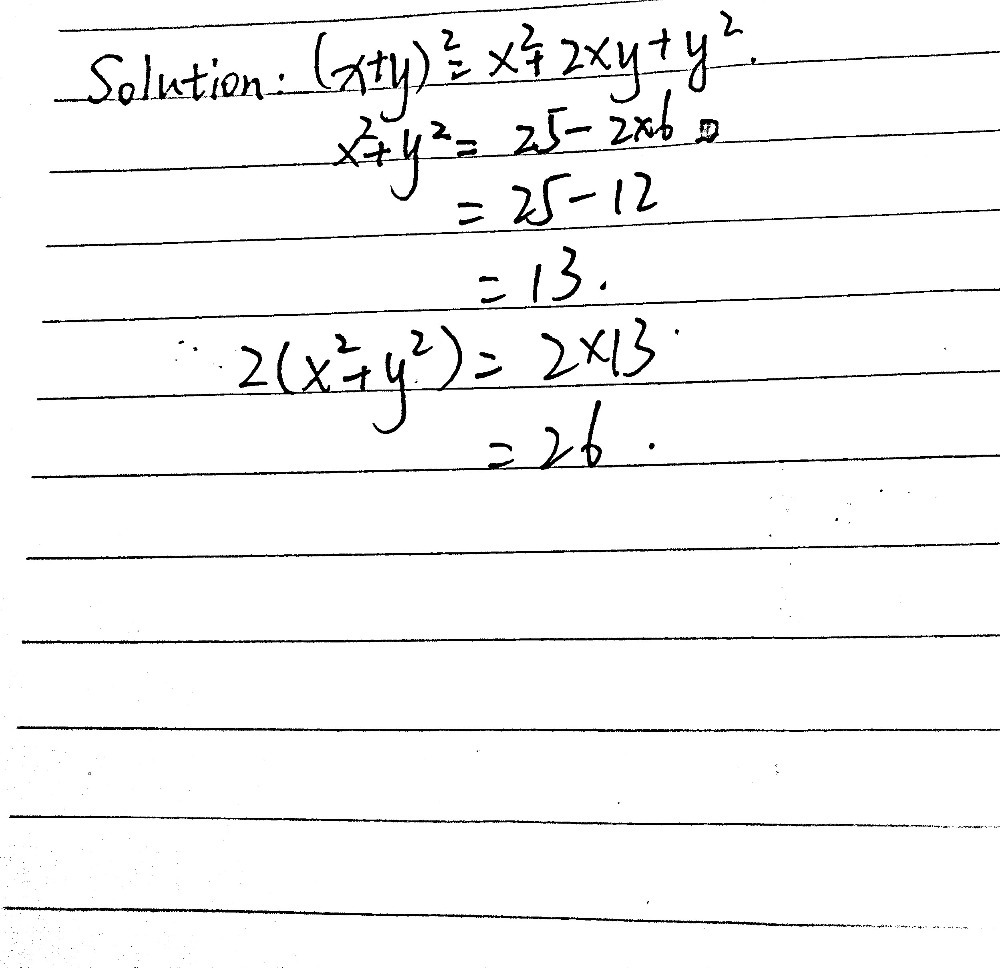 Solution: (x+y)² = x²+2xy+y².
x²+y² = 25-2×6
= 25-12
= 13.
2(x²+y²) = 2×13
= 26.